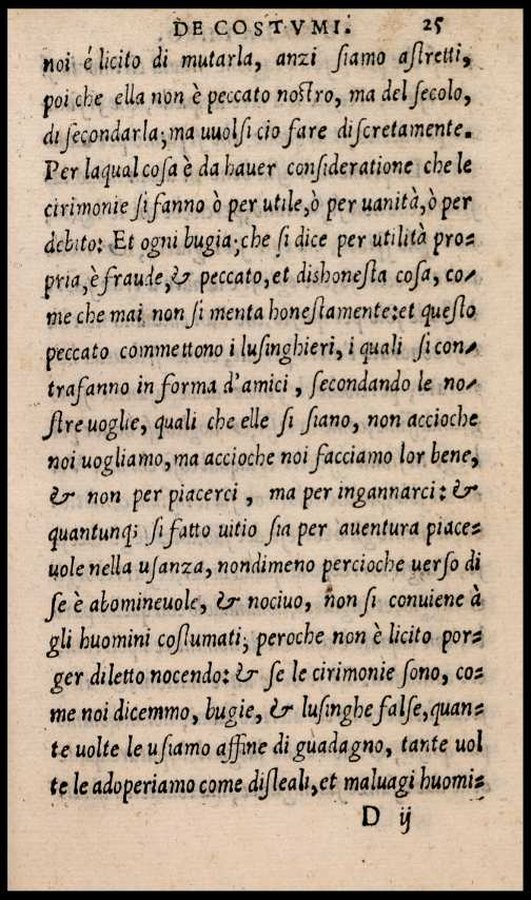 DE COSTVMI. 25
noi é licito di mutarla, anzi ſiamo aſtretti,
poi che ella non è peccato noſtro, ma del ſecolo,
di ſecondarla; ma uuolſi cio fare diſcretamente.
Per laqual coſa è da hauer conſideratione che le
cirimonie ſi fanno ò per utile, ò per uanità, ò per
debito: Et ogni bugia; che ſi dice per utilità pro-
pria, è fraude, & peccato, et dishoneſta coſa, co-
me che mai non ſi menta honeſtamente: et queſto
peccato commettono i luſinghieri, i quali ſi con-
trafanno in forma d'amici, ſecondando le no-
ſtre uoglie, quali che elle ſi ſiano, non accioche
noi uogliamo, ma accioche noi facciamo lor bene,
& non per piacerci, ma per ingannarci: &
quantunq; ſi fatto uitio ſia per auentura piace-
uole nella uſanza, nondimeno percioche uerſo di
ſe è abomineuole, & nociuo, non ſi conuiene à
gli huomini coſtumati; peroche non è licito por-
ger diletto nocendo: & ſe le cirimonie ſono, co-
me noi dicemmo, bugie, & luſinghe falſe, quan-
te uolte le uſiamo affine di guadagno, tante uol
te le adoperiamo come diſleali, et maluagi huomi-
D ij